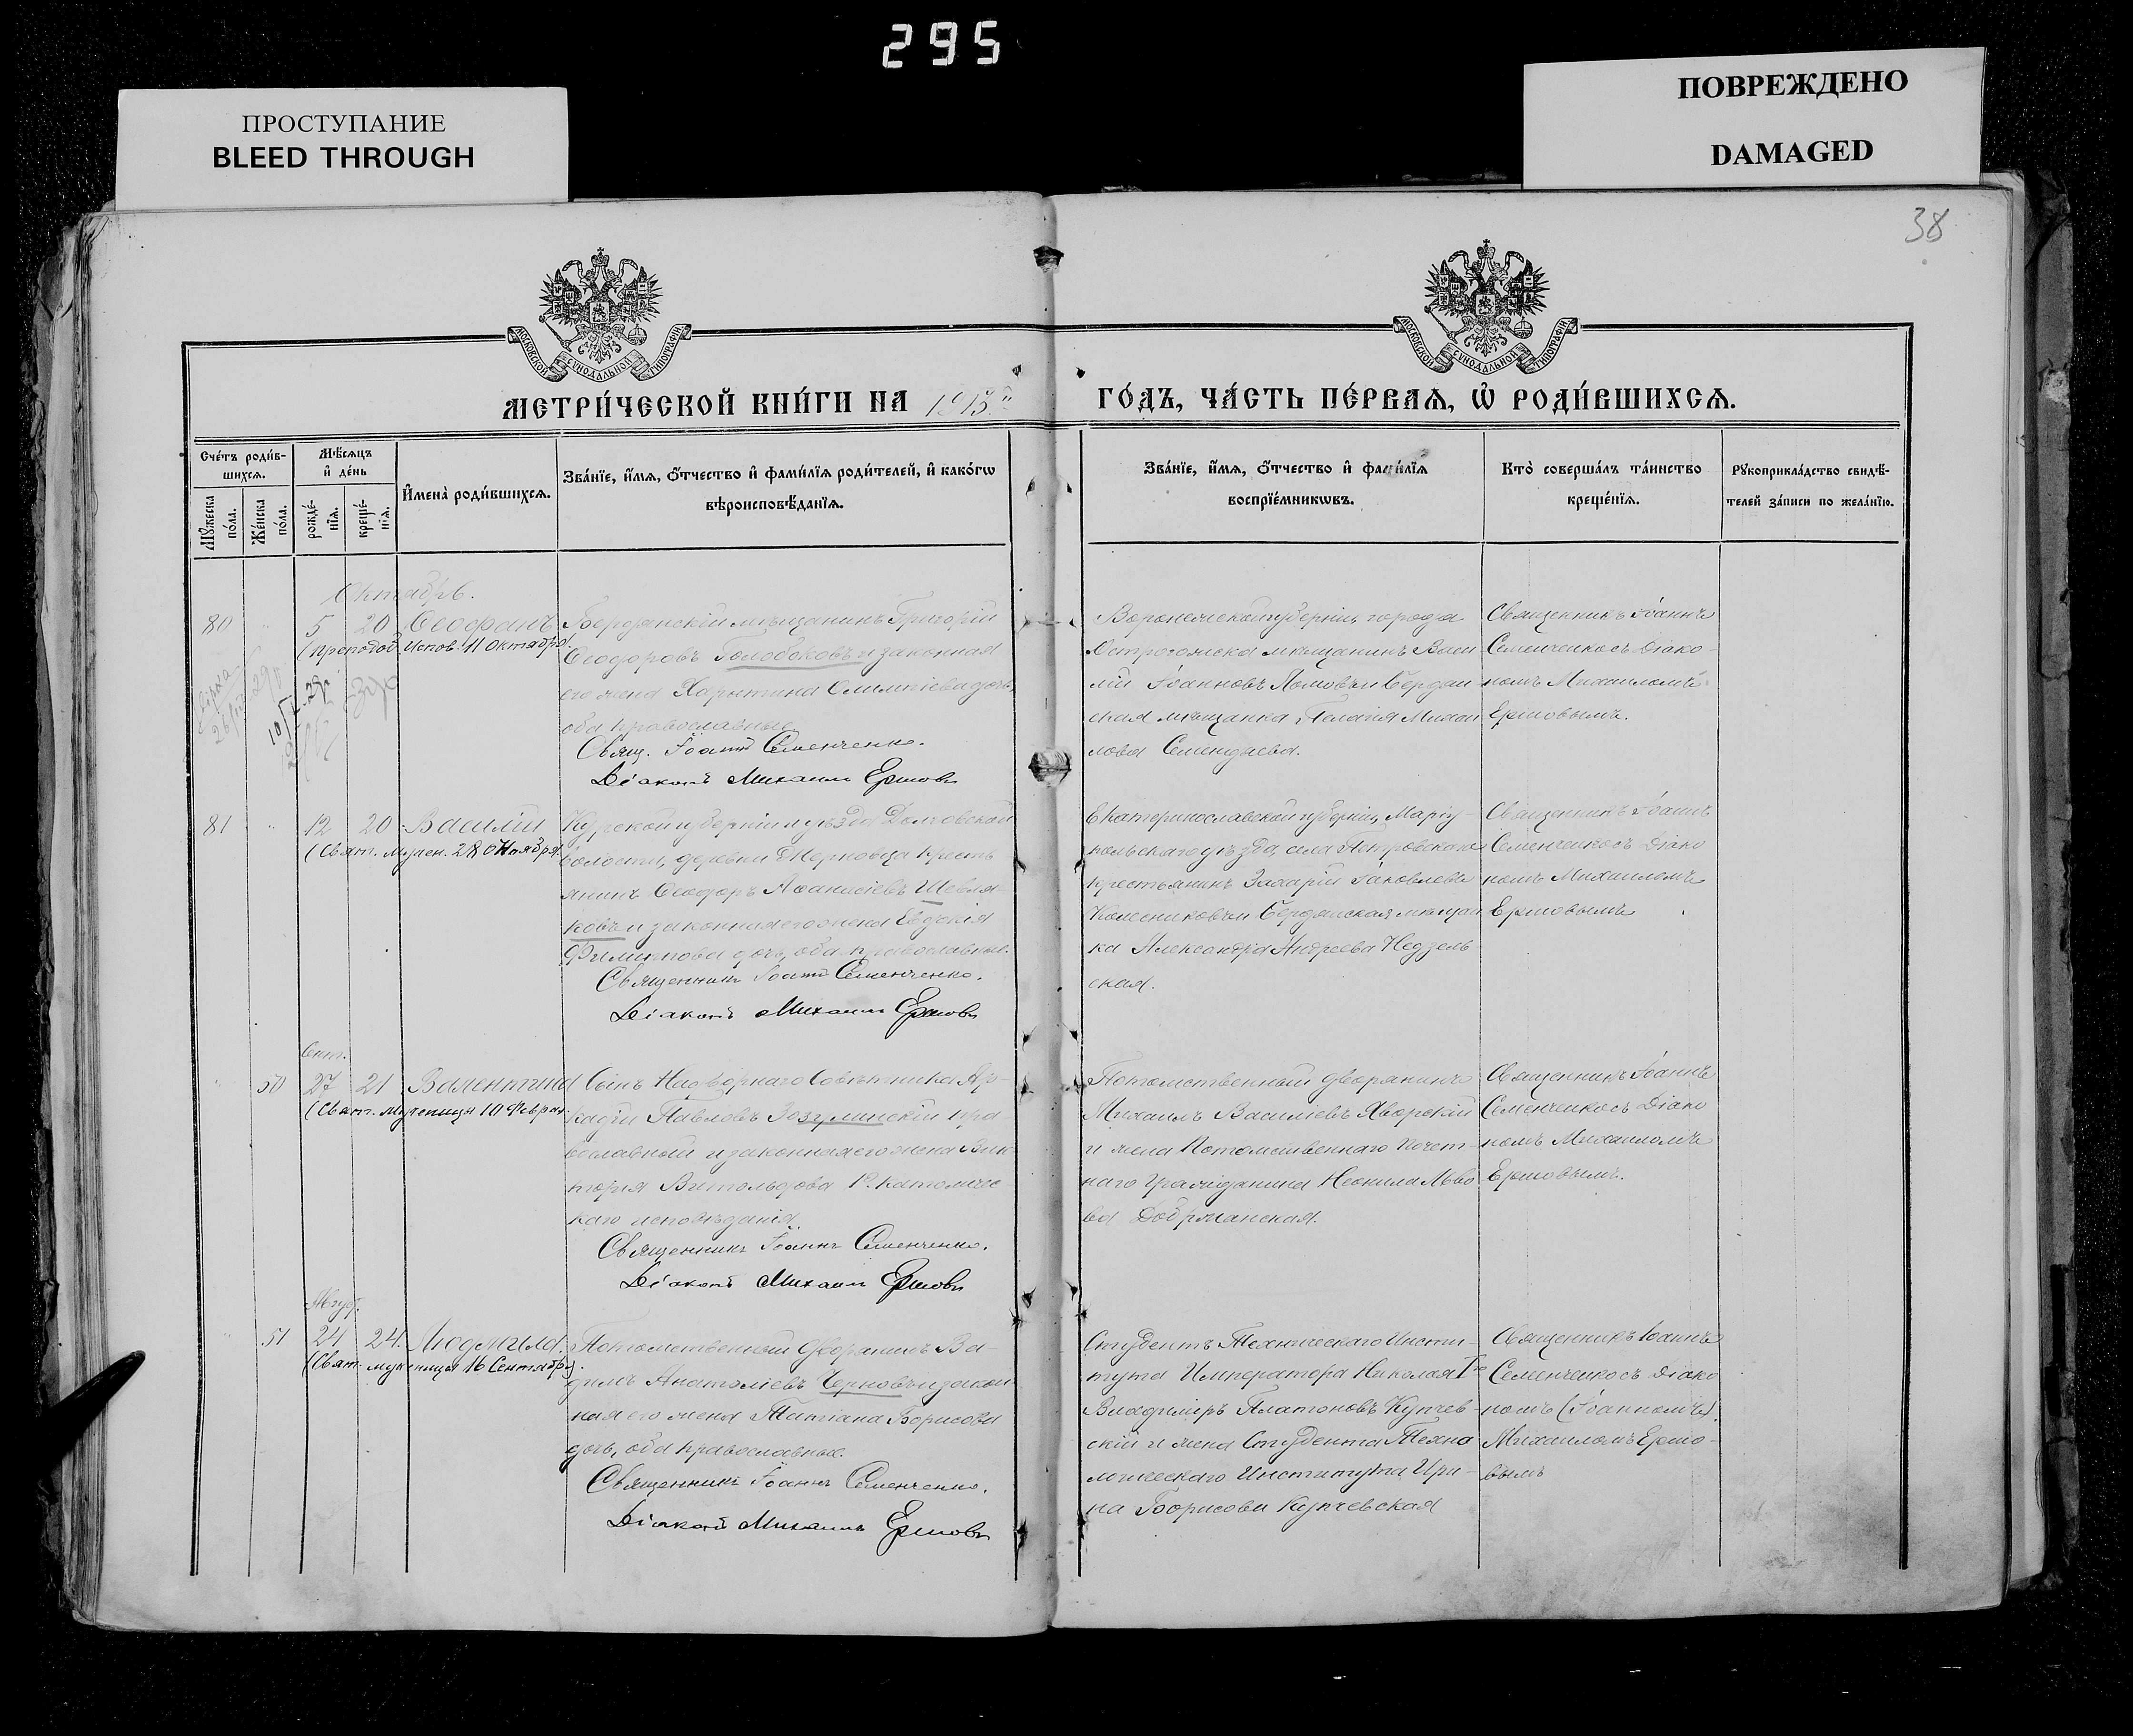 295
ПРОСТУПАНИЕ
BLEED THROUGH
ПОВРЕЖДЕНО
DAMAGED
38
МОСКОВСКОЙ СѴНОДАЛЬНОЙ ТИПОГРАФІИ
МОСКОВСКОЙ СѴНОДАЛЬНОЙ ТИПОГРАФІИ
МЕТРИ́ЧЕСКОЙ КНИ́ГИ НА 1913й
ГО́ДЪ, ЧА́СТЬ ПЕ́РВАѦ, Ѡ҆ РОДИ́ВШИХСѦ.
Сче́тъ роди́в-
шихсѧ.
Мꙋ́жеска
по́ла.
Же́нска
по́ла.
Мѣ́сѧцъ
и҆ де́нь
рожде́-
нїѧ.
креще́-
нїѧ.
И҆мена̀ роди́вшихсѧ.
Зва́нїе, и҆́мѧ, ѻ҆́тчество и҆ фами́лїѧ роди́телей, и҆ како́гѡ
вѣроисповѣ́данїѧ.
Зва́нїе, и҆́мѧ, ѻ҆́тчество и҆ фами́лїѧ
воспрїе́мникѡвъ.
Кто̀ соверша́лъ та́инство
креще́нїѧ.
Рꙋкоприкла́дство свидѣ́-
телей за́писи по жела́нїю.
Октябрь.
80 " 5 20 Ѳеофанъ
(препод. Испов. 11 Октября)
Бердянскій мѣщанинъ Григорій
Ѳеодоровъ Голобоковъ и законная
его жена Харитина Олимпіева дочь,
оба православные
Свящ. Іоаннъ Семенченко.
Діаконъ Михаилъ Ершовъ
Воронежской губерніи, города
Острогожска мѣщанинъ Васи
лій Іоанновъ и Бердян
ская мѣщанка, Пелагія Михаи
лова
Священникъ Іоаннъ
Семенченко съ Діако-
номъ Михаиломъ
Ершовымъ.
81 " 12 20 Василій
(Свят. Мучен. 28 Ноября)
Курской губерніи и уѣзда Долговской
волости, деревни кресть
янинъ Ѳеодоръ Аѳанасіевъ Шевля-
ковъ и законная его жена Евдокія
Филиппова дочь, оба православные.
Священникъ Іоаннъ Семенченко.
Діаконъ Михаилъ Ершовъ
Екатеринославской губерніи, Маріу-
польскаго уѣзда, села Петровскаго
крестьянинъ Захарій Іаковлевъ
Колесниковъ и Бердянская мѣщан
ка Александра Андреева Недзель
ская.
Священникъ Іоаннъ
Семенченко съ Діако
номъ Михаиломъ
Ершовымъ
Сент.
" 50 27 21 Валентина
(Свят. мученица 10 Феврал.
Сынъ Надворнаго Совѣтника Ар-
кадій Павловъ Зозулинскій пра
вославный и законная его жена Вик
торія Витольдова Р. католичес
каго исповѣданія.
Священникъ Іоаннъ Семенченко.
Діаконъ Михаилъ Ершовъ
Потомственный дворянинъ
Михаилъ Василіевъ Яворскій
и жена Потомственнаго Почет
наго Гражданина Неонила Льво
ва
Священникъ Іоаннъ
Семенченко съ Діако
номъ Михаиломъ
Ершовымъ.
Авгус.
" 51 24 24. Людмила.
(Свят. мученица 16 Сентября).
Потомственный дворянинъ Ва-
димъ Анатоліевъ Черновъ и закон
ная его жена Татіана Борисова
дочь, оба православные.
Священникъ Іоаннъ Семенченко.
Діаконъ Михаилъ Ершовъ
Студентъ Техническаго Инсти-
тута Императора Николая Iго
Владиміръ Платоновъ Купчев-
скій и жена Студента Техно
логическаго Института Ири-
на Борисова Купчевская
Священникъ Іоаннъ
Семенченко съ Діако
номъ (Іоанномъ)
Михаиломъ Ершо-
вымъ